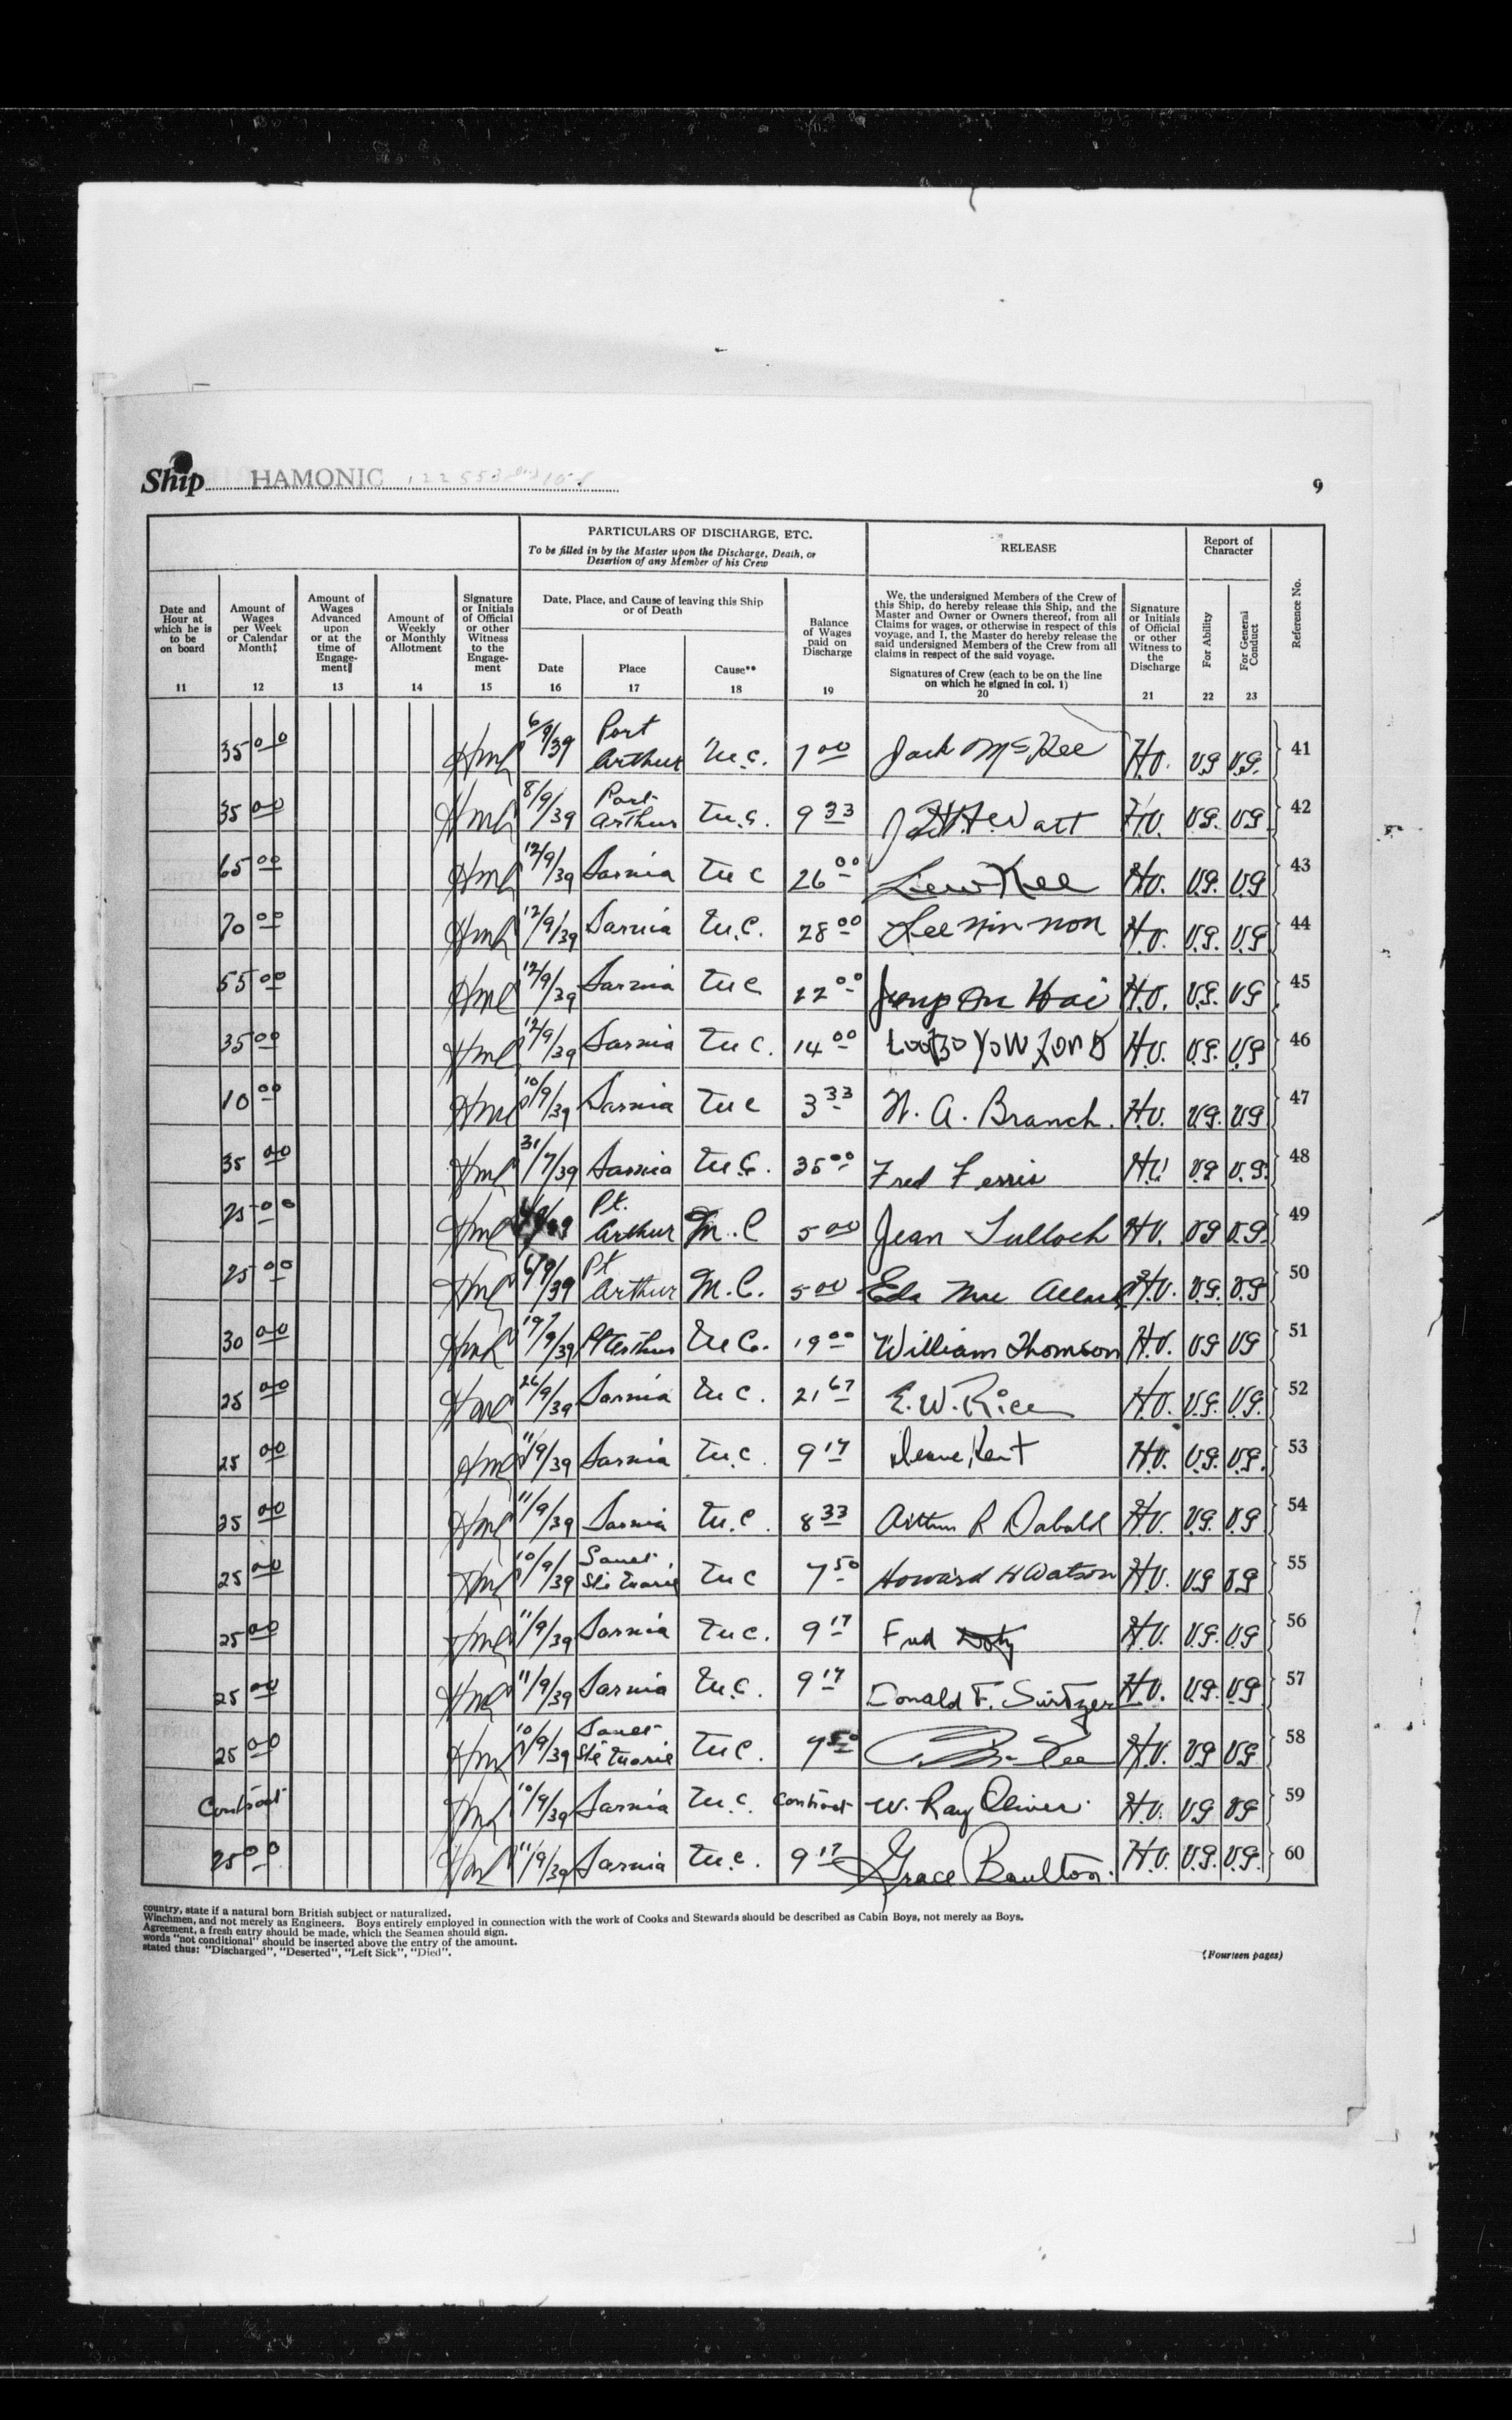 Ship HAMONIC
9
PARTICULARS OF DISCHARGE, ETC.
To be filled in by the Master upon the Discharge, Death, or
Desertion of any Member of his Crew
RELEASE
Report of
Character
Reference No.
Date and
Hour at
which he is
to be
on board
11
Amount of
Wages
per Week
or Calendar
Month‡
12
Amount of
Wages
Advanced
upon
or at the
time of
Engage-
ment‖
13
Amount of
Weekly
or Monthly
Allotment
14
Signature
or Initials
of Official
or other
Witness
to the
Engage-
ment
15
Date, Place, and Cause of leaving this Ship
or of Death
Date
16
Place
17
Cause**
18
Balance
of Wages
paid on
Discharge
19
We, the undersigned Members of the Crew of
this Ship, do hereby release this Ship, and the
Master and Owner or Owners thereof, from all
Claims for wages, or otherwise in respect of this
voyage, and I, the Master do hereby release the
said undersigned Members of the Crew from all
claims in respect of the said voyage.
Signatures of Crew (each to be on the line
on which he signed in col. 1)
20
Signature
or Initials
of Official
or other
Witness to
the
Discharge
21
For Ability
22
For General
Conduct
23
35 00 6/9/39 Port Arthur M.C. 7 00 Jack McKee H.V. V.G V.G. 41
35 00 8/9/39 Port Arthur M.C. 9 33 Watt H.V. V.G. V.G 42
65 00 12/9/39 Sarnia M C 26 00 Lew Kee H.V. V.G. V.G 43
70 00 12/9/39 Sarnia M.C. 28 00 Lee Nin Non H.V. V.G. V.G 44
55 00 12/9/39 Sarnia M C 22 00 Jung On Hoi H.V. V.G. V.G 45
35 00 12/9/39 Sarnia M C. 14 00 H.V. V.G. V.G 46
10 00 10/9/39 Sarnia M C 3 33 A. Branch. H.V. V.G. V.G 47
35 00 31/7/39 Sarnia M.C. 35 00 Fred Ferris H.V. V.G V.G. 48
25 00 Pt. Arthur M.C 5 00 Jean Tulloch H.V. V.G V.G. 49
25 00 6/9/39 Pt Arthur M.C. 5 00 Eda Mae H.V. V.G. V.G 50
30 00 19/9/39 Pt Arthur M C. 19 00 William Thomson H.V. V.G V.G 51
25 00 26/9/39 Sarnia M C. 21 67 E.W. Rice H.V. V.G. V.G. 52
25 00 11/9/39 Sarnia M.C. 9 17 Kent H.V. V.G. V.G. 53
25 00 11/9/39 Sarnia M.C. 8 33 Arthur R Dabold H.V. V.G. V.G 54
25 00 10/9/39 Sault Ste Marie M C 7 50 Howard H Watson H.V. V.G V.G 55
25 00 11/9/39 Sarnia M C. 9 17 Fred Doty H.V. V.G. V.G 56
25 00 11/9/39 Sarnia M.C. 9 17 Donald F. H.V. V.G. V.G 57
25 00 10/9/39 Sault Ste Marie M C. 7 50 H.V. V.G V.G. 58
Contract 10/9/39 Sarnia M.C. Contract W. Ray Oliver H.V. V.G V.G 59
25 00 11/9/39 Sarnia M.C. 9 17 Grace Boulton. H.V. V.G. V.G. 60
country, state if a natural born British subject or naturalized.
Winchmen, and not merely as Engineers. Boys entirely employed in connection with the work of Cooks and Stewards should be described as Cabin Boys, not merely as Boys.
Agreement, a fresh entry should be made, which the Seamen should sign.
words "not conditional" should be inserted above the entry of the amount.
stated thus: "Discharged", "Deserted", "Left Sick", "Died".
(Fourteen pages)